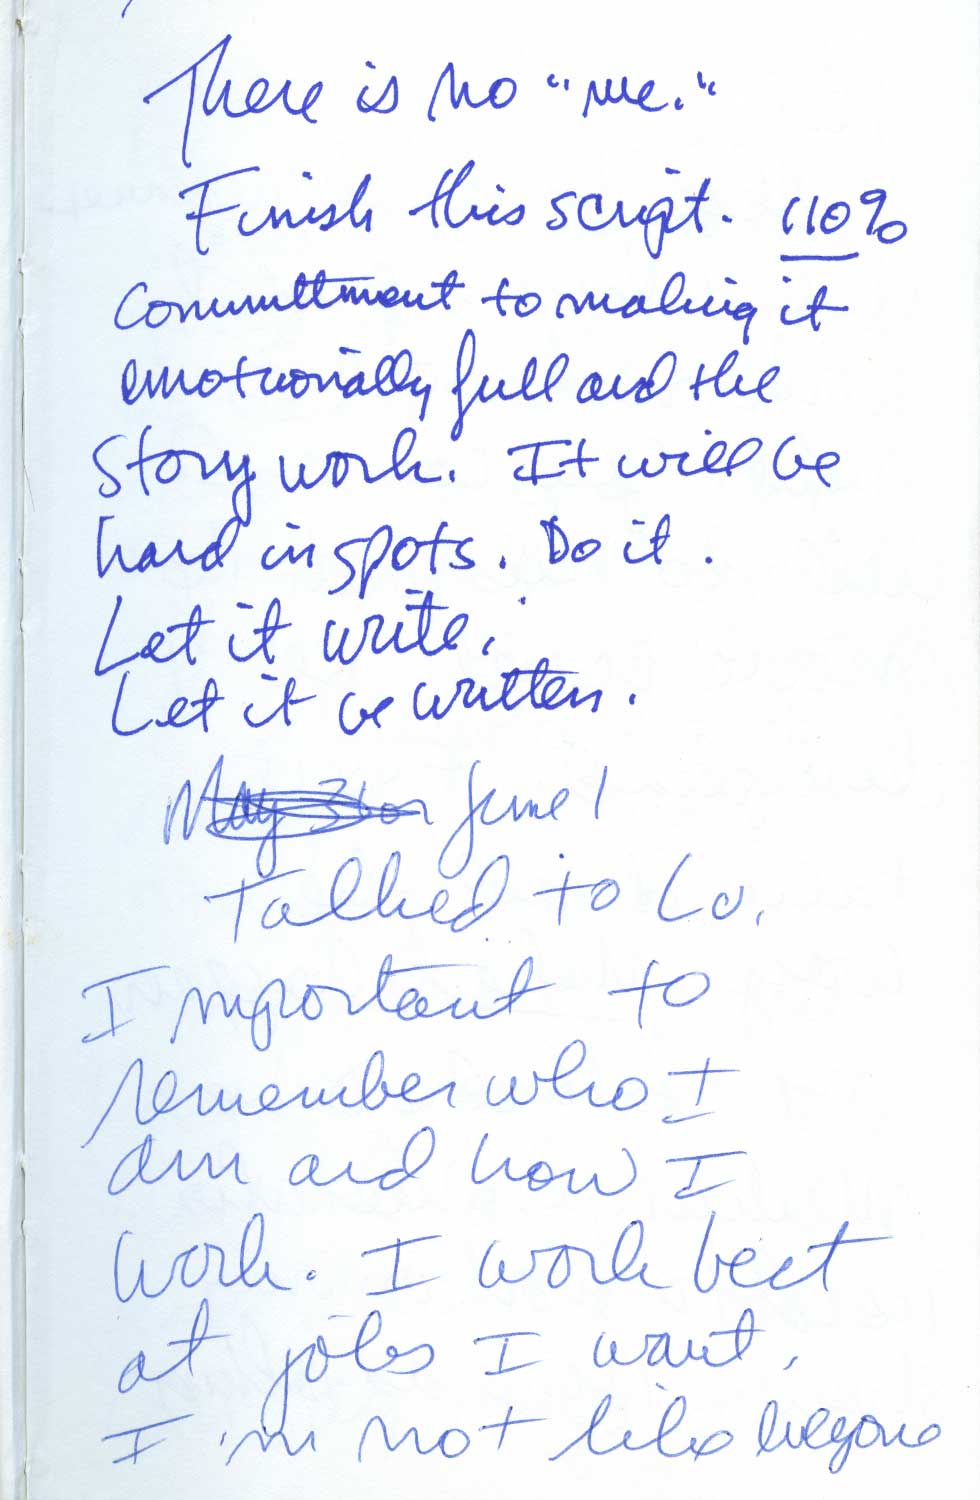 There is no "me."
Finish this script. 110%
Committment to making it
emotionally full and the
story work. It will be
hard in spots. Do it.
Let it write.
Let it be written.
May 31 or June 1
Talked to Lu.
Important to
remember who I
am and how I
work. I work best
at jobs I want.
I'm not like everyone